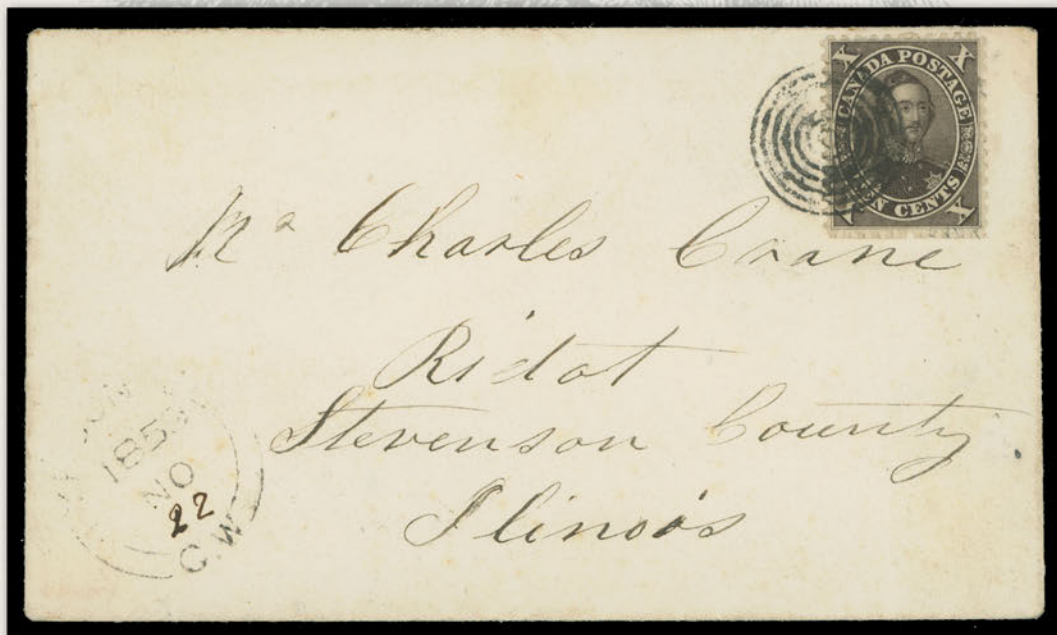 X X
CANADA POSTAGE
EN CENTS
X
Mr Charles Crane
Ridot
Stevenson County
Ilinois
185
NO
22
C.W